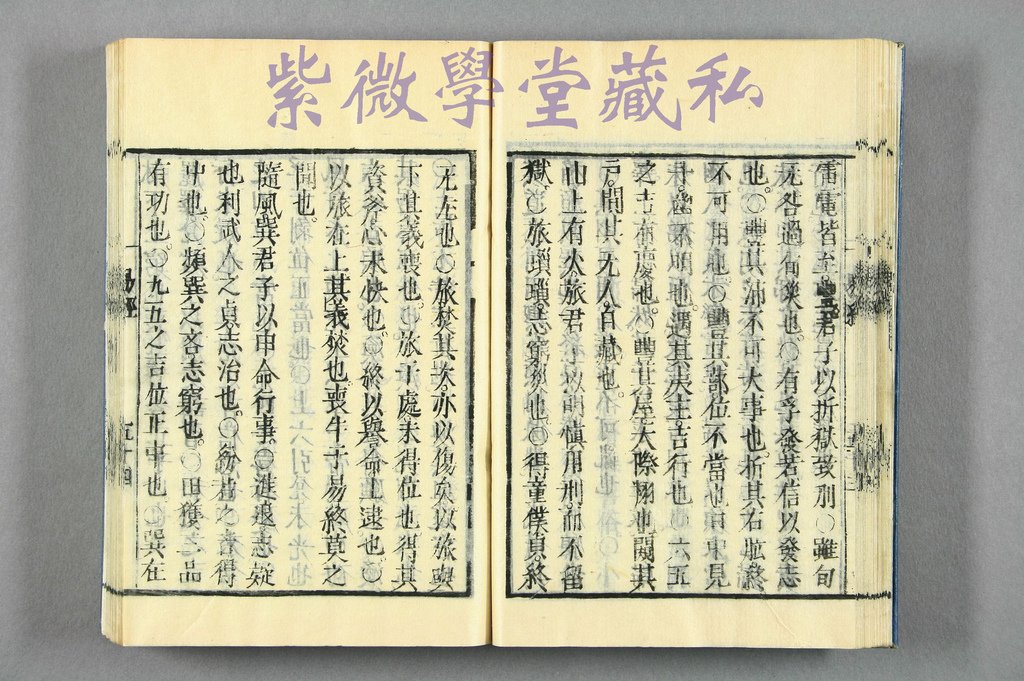 紫微學堂藏私
雷電皆至豐君子以折獄致刑〇雖旬
无咎過旬災也。〇有孚發若信以發志
也。〇豐其沛不可大事也。折其右肱終
不可用也。〇豐其蔀位不當也日中見
斗。幽不明也。遇其夷主吉行也〇六五
之吉有慶也。〇豐其屋天際翔也闚其
戶。闃其无人。自藏也。
山上有火旅君子以明慎用刑。而不留
獄。〇旅瑣瑣。志窮災也。〇得童僕貞。終
无尤也。〇旅焚其次。亦以傷矣。以旅與
下其義喪也。〇旅于處。未得位也得其
資斧。心未快也。〇終以譽命上逮也。〇
以旅在上其義焚也。喪牛于易終莫之
聞也。
隨風巽君子以申命行事。〇進退志疑
也利武人之貞志治也。〇紛若之吉得
中也。〇頻巽之吝志窮也。〇田獲三品
有功也。〇九五之吉位正中也〇巽在
易經
五十四